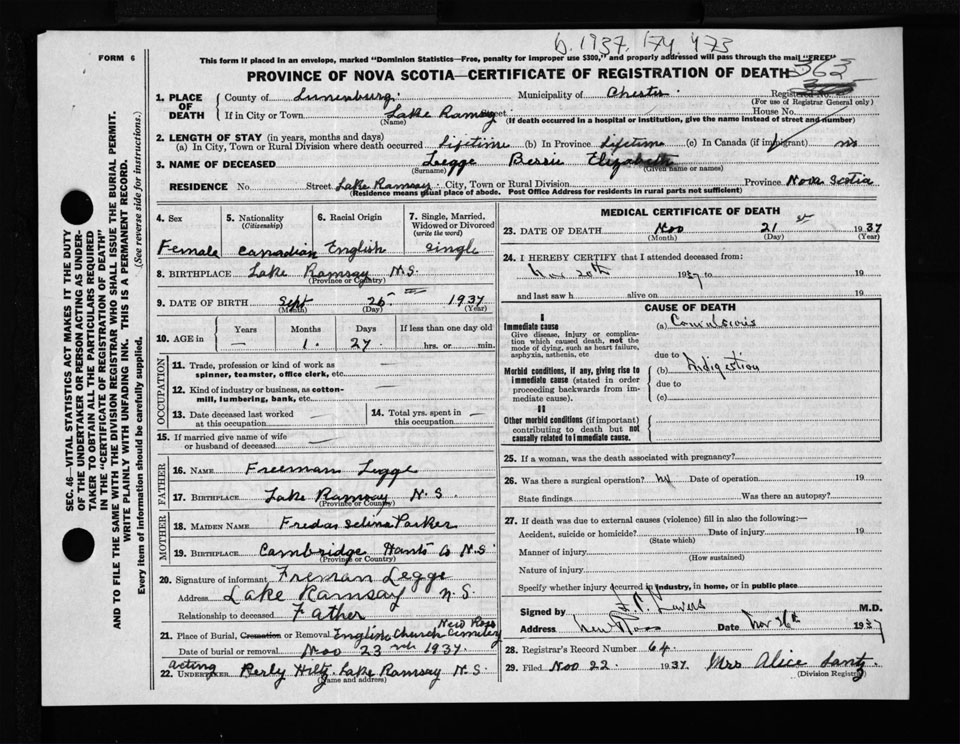 b. 1937. 174 473
FORM 6
This form if placed in an envelope, marked "Dominion Statistics—Free, penalty for improper use $300," and properly addressed will pass through the mail "FREE"
PROVINCE OF NOVA SCOTIA—CERTIFICATE OF REGISTRATION OF DEATH
363
Registered No.
(For use of Registrar General only)
1. PLACE OF DEATH
County of Lunenburg. Municipality of Chester.
If in City or Town Lake Ramsay Street House No.
(Name) (If death occurred in a hospital or institution, give the name instead of street and number)
2. LENGTH OF STAY (in years, months and days)
(a) In City, Town or Rural Division where death occurred lifetime (b) In Province lifetime (c) In Canada (if immigrant) no
3. NAME OF DECEASED Legge Bessie Elizabeth
(Surname) (Given name or names)
RESIDENCE No. Street Lake Ramsay. City, Town or Rural Division Province Nova Scotia
(Residence means usual place of abode. Post Office Address for residents in rural parts not sufficient)
4. Sex Female
5. Nationality (Citizenship) Canadian
6. Racial Origin English
7. Single, Married, Widowed or Divorced (write the word) single
8. BIRTHPLACE Lake Ramsay N.S.
(Province or Country)
9. DATE OF BIRTH Sept 25 1937
(Month) (Day) (Year)
10. AGE in Years — Months 1. Days 27 If less than one day old hrs. or min.
OCCUPATION
11. Trade, profession or kind of work as spinner, teamster, office clerk, etc. —
12. Kind of industry or business, as cotton-mill, lumbering, bank, etc. —
13. Date deceased last worked at this occupation —
14. Total yrs. spent in this occupation —
15. If married give name of wife or husband of deceased —
FATHER
16. NAME Freeman Legge
17. BIRTHPLACE Lake Ramsay N.S.
(Province or Country)
MOTHER
18. MAIDEN NAME Fredas Selina Parker
19. BIRTHPLACE Cambridge Hants Co N.S.
(Province or Country)
20. Signature of informant Freman Legge
Address Lake Ramsay N.S.
Relationship to deceased Father
21. Place of Burial, Cremation or Removal English Church Cemetery New Ross
Date of burial or removal Nov 23 1937.
acting
22. UNDERTAKER Perly Hiltz. Lake Ramsay N.S.
(Name and address)
MEDICAL CERTIFICATE OF DEATH
23. DATE OF DEATH Nov 21st 1937
(Month) (Day) (Year)
24. I HEREBY CERTIFY that I attended deceased from:
Nov 20th 1937 to 19
and last saw h alive on 19
CAUSE OF DEATH
I
Immediate cause
Give disease, injury or complication which caused death, not the mode of dying, such as heart failure, asphyxia, asthenia, etc
(a) Convulsions
due to
Morbid conditions, if any, giving rise to immediate cause (stated in order proceeding backwards from immediate cause).
(b) Indigestion
due to
(c)
II
Other morbid conditions (if important) contributing to death but not causally related to immediate cause.
25. If a woman, was the death associated with pregnancy?
26. Was there a surgical operation? no Date of operation 19
State findings Was there an autopsy?
27. If death was due to external causes (violence) fill in also the following:—
Accident, suicide or homicide? Date of injury 19
(State which)
Manner of injury
(How sustained)
Nature of injury
Specify whether injury occurred in industry, in home, or in public place
Signed by M.D.
Address New Ross Date Nov 26th 1937
28. Registrar's Record Number 64.
29. Filed Nov 22. 1937. Mrs Alice Lantz.
(Division Registrar)
SEC. 46—VITAL STATISTICS ACT MAKES IT THE DUTY
OF THE UNDERTAKER OR PERSON ACTING AS UNDER-
TAKER TO OBTAIN ALL THE PARTICULARS REQUIRED
IN THE "CERTIFICATE OF REGISTRATION OF DEATH"
AND TO FILE THE SAME WITH THE DIVISION REGISTRAR WHO SHALL ISSUE THE BURIAL PERMIT.
WRITE PLAINLY WITH UNFADING INK. THIS IS A PERMANENT RECORD.
Every item of information should be carefully supplied. (See reverse side for instructions.)